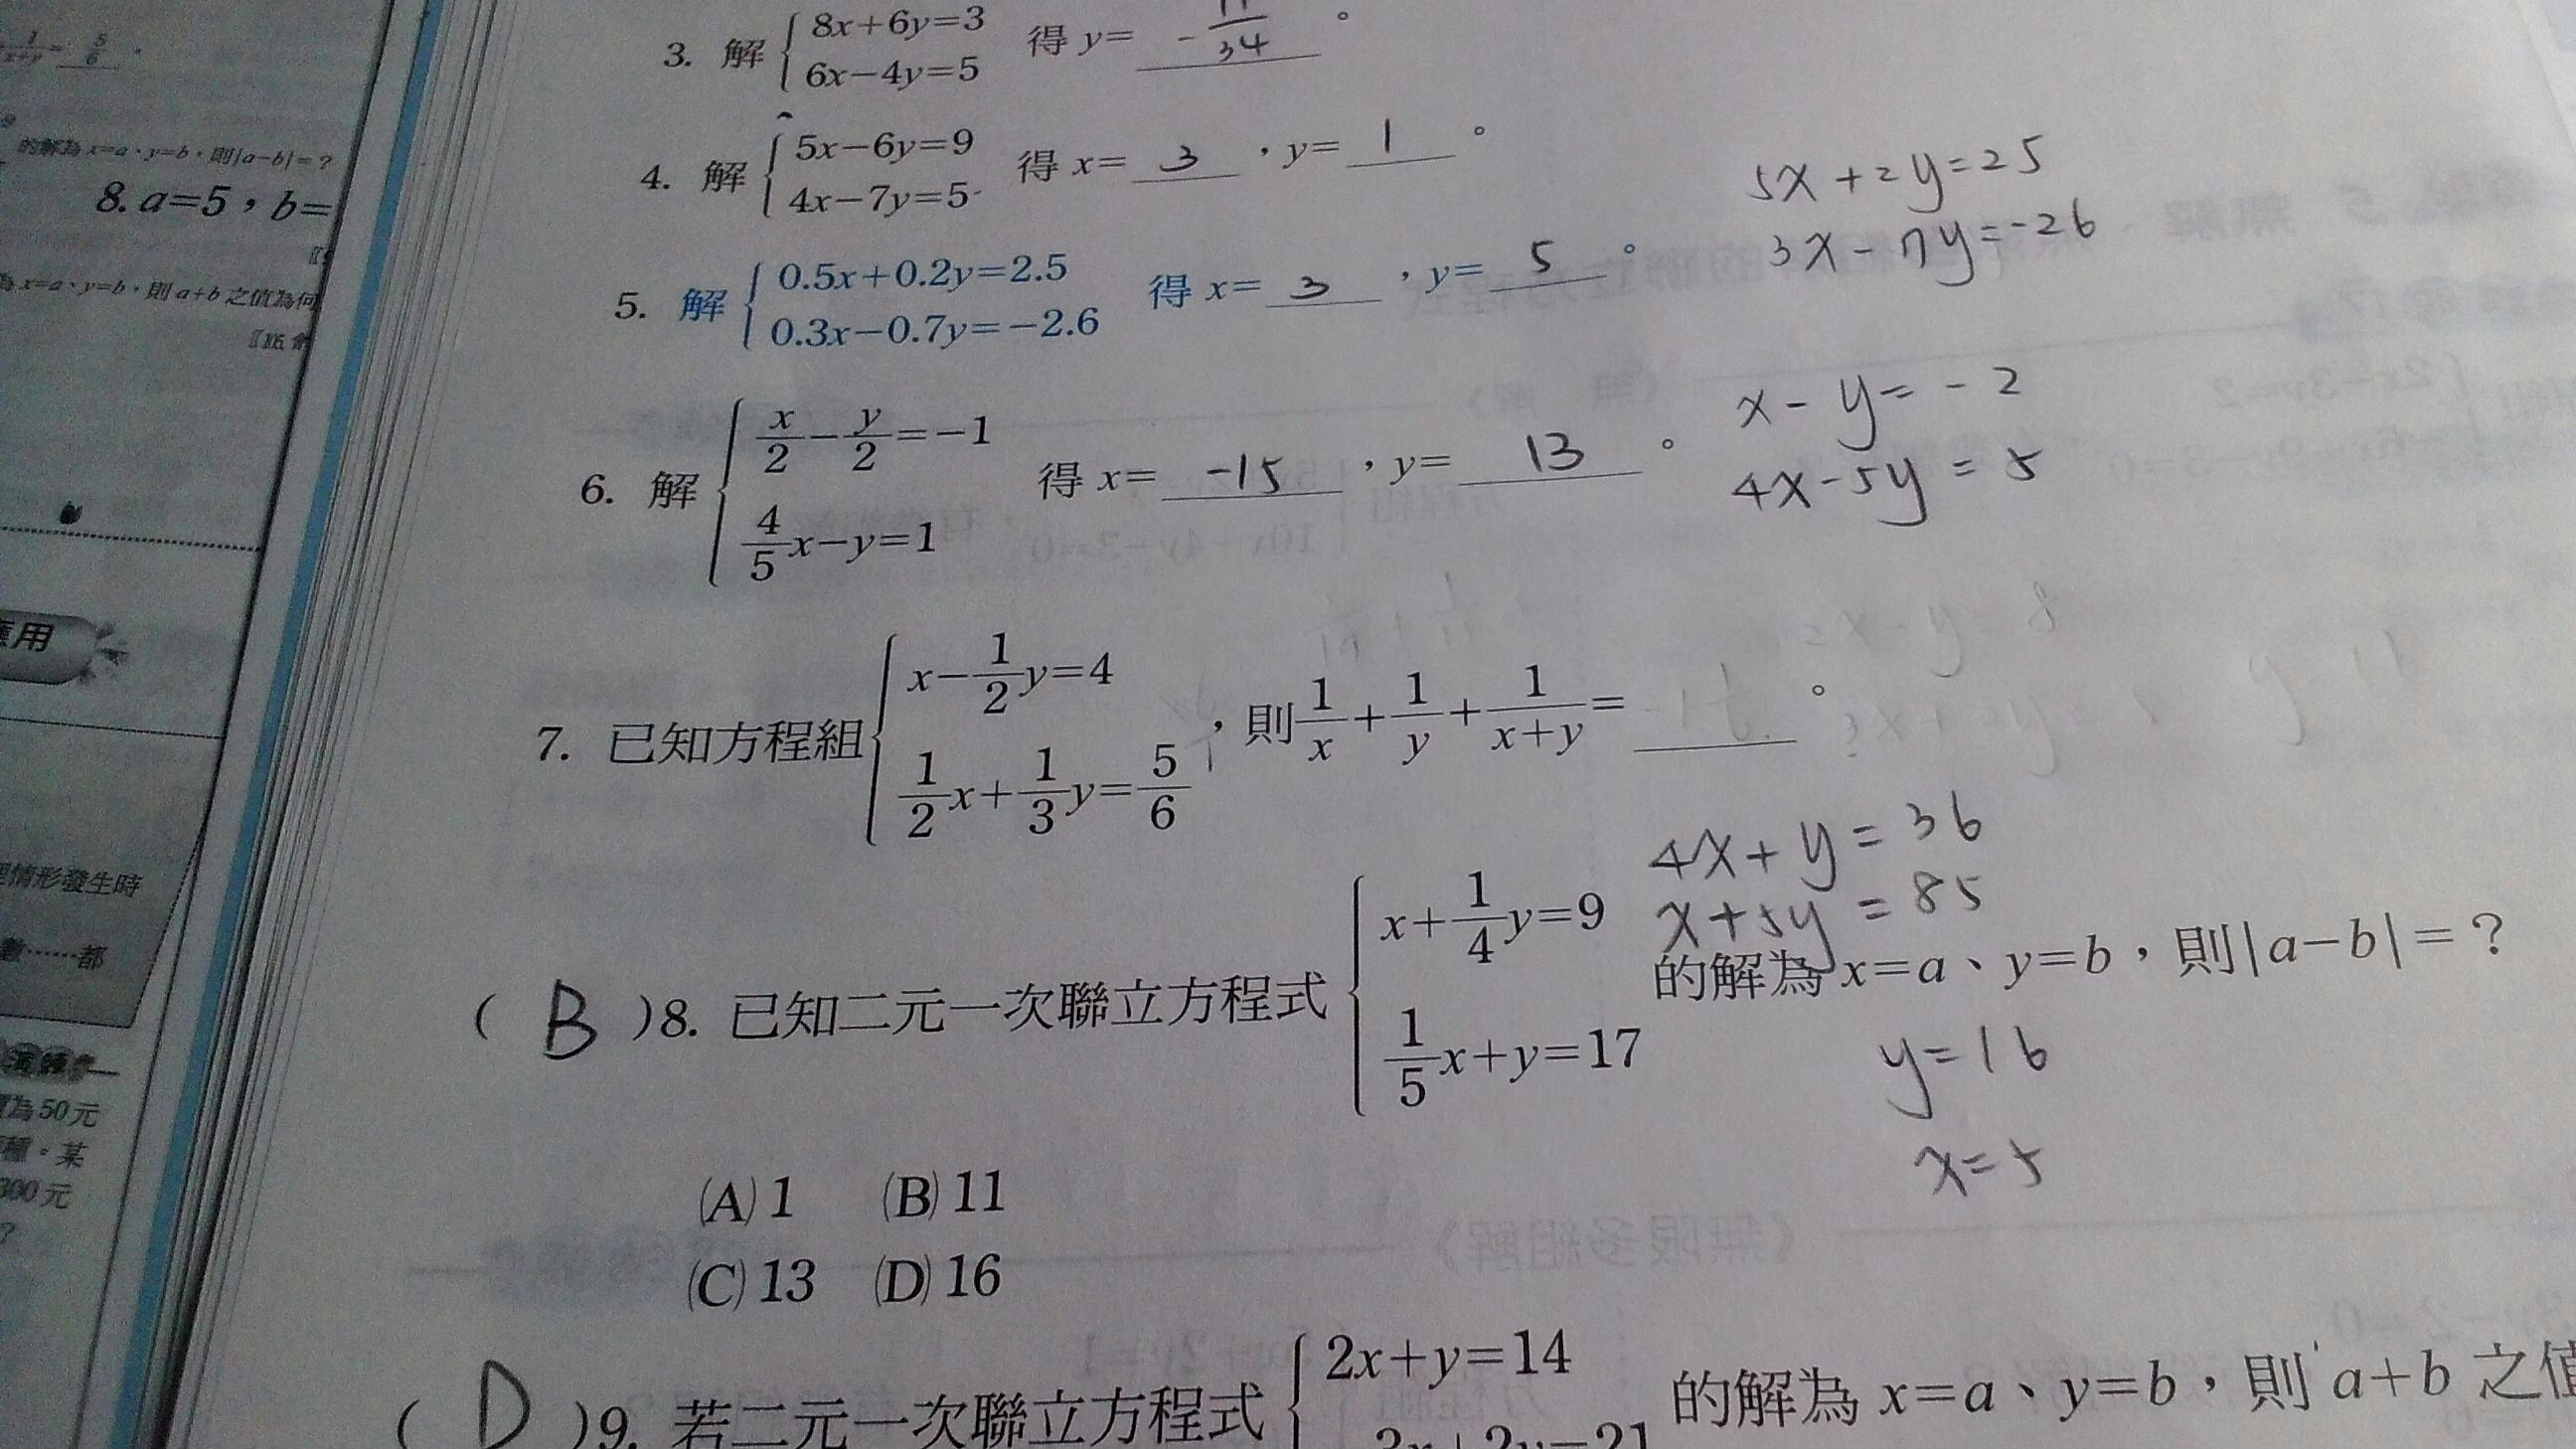 1/(x+y)= 5/6 。
的解為 x=a、y=b,則|a-b|=?
8. a=5,b=
為 x=a、y=b,則 a+b 之值為何
應用
理情形發生時
數……都
演練
價為50元
種。某
300元
?
3. 解 { 8x+6y=3
6x-4y=5 得 y= - /34 。
4. 解 { 5x-6y=9
4x-7y=5 得 x= 3 ,y= 1 。
5x+2y=25
3x-7y=-26
5. 解 { 0.5x+0.2y=2.5
0.3x-0.7y=-2.6 得 x= 3 ,y= 5 。
6. 解 { x/2-y/2=-1
4/5x-y=1 得 x= -15 ,y= 13 。
x-y=-2
4x-5y=5
7. 已知方程組 { x-1/2y=4
1/2x+1/3y=5/6 ,則 1/x+1/y+1/(x+y)= 。
4x+y=36
x+5y=85
( B )8. 已知二元一次聯立方程式 { x+1/4y=9
1/5x+y=17 的解為 x=a、y=b,則|a-b|=?
y=16
x=5
(A) 1 (B) 11
(C) 13 (D) 16
《無限多組解》
( D )9. 若二元一次聯立方程式 { 2x+y=14
3x+2y=21 的解為 x=a、y=b,則 a+b 之值